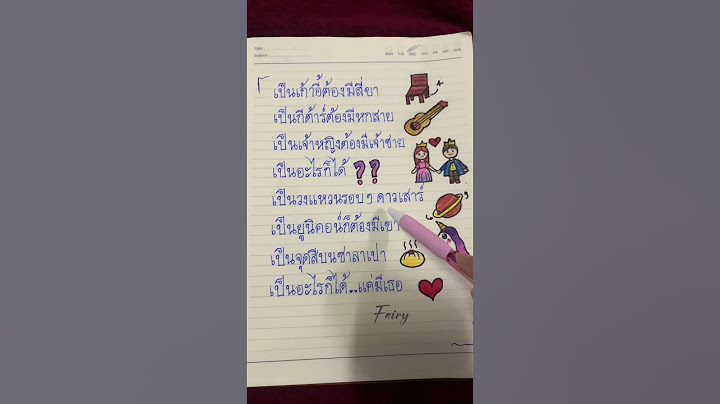 Date
Subject
MON TUE WED THU FRI SAT SUN
「
เป็นเก้าอี้ต้องมีสี่ขา
เป็นกีต้าร์ต้องมีหกสาย
เป็นเจ้าหญิงต้องมีเจ้าชาย
เป็นอะไรก็ได้ ??
เป็นวงแหวนรอบๆ ดาวเสาร์
เป็นยูนิคอน์ก็ต้องมีเขา
เป็นจุดสีบนซาลาเปา
เป็นอะไรก็ได้..แค่มีเธอ
Fairy